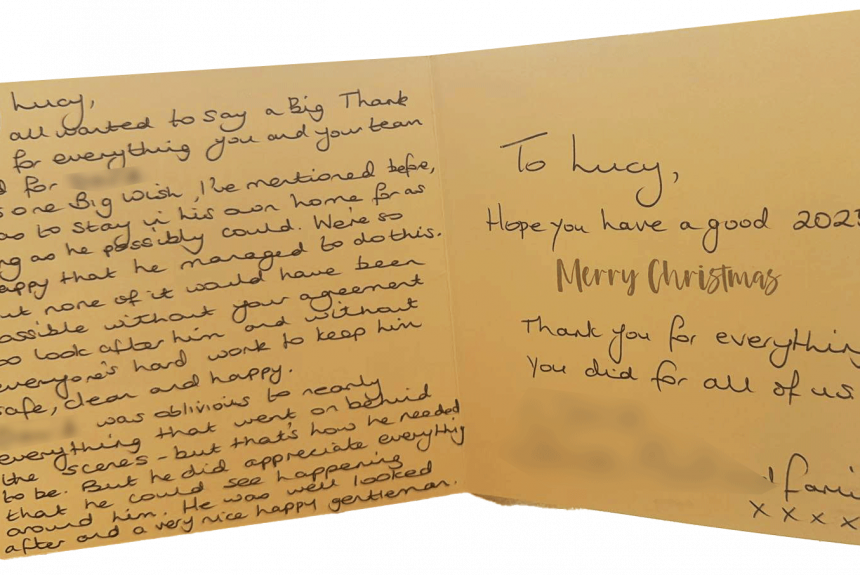 Lucy,
all wanted to say a Big Thank
for everything you and your team
for
one Big wish, I've mentioned before,
to stay in his own home for as
as he possibly could. We're so
appy that he managed to do this.
ut none of it would have been
ossible without your agreement
o look after him and without
everyone's hard work to keep him
safe, clean and happy.
was oblivious to nearly
everything that went on behind
the scenes - but that's how he needed
to be. But he did appreciate everything
that he could see happening
around him. He was well looked
after and a very nice happy gentleman.
To Lucy,
Hope you have a good 2023
Merry Christmas
Thank you for everything
You did for all of us
x x x x